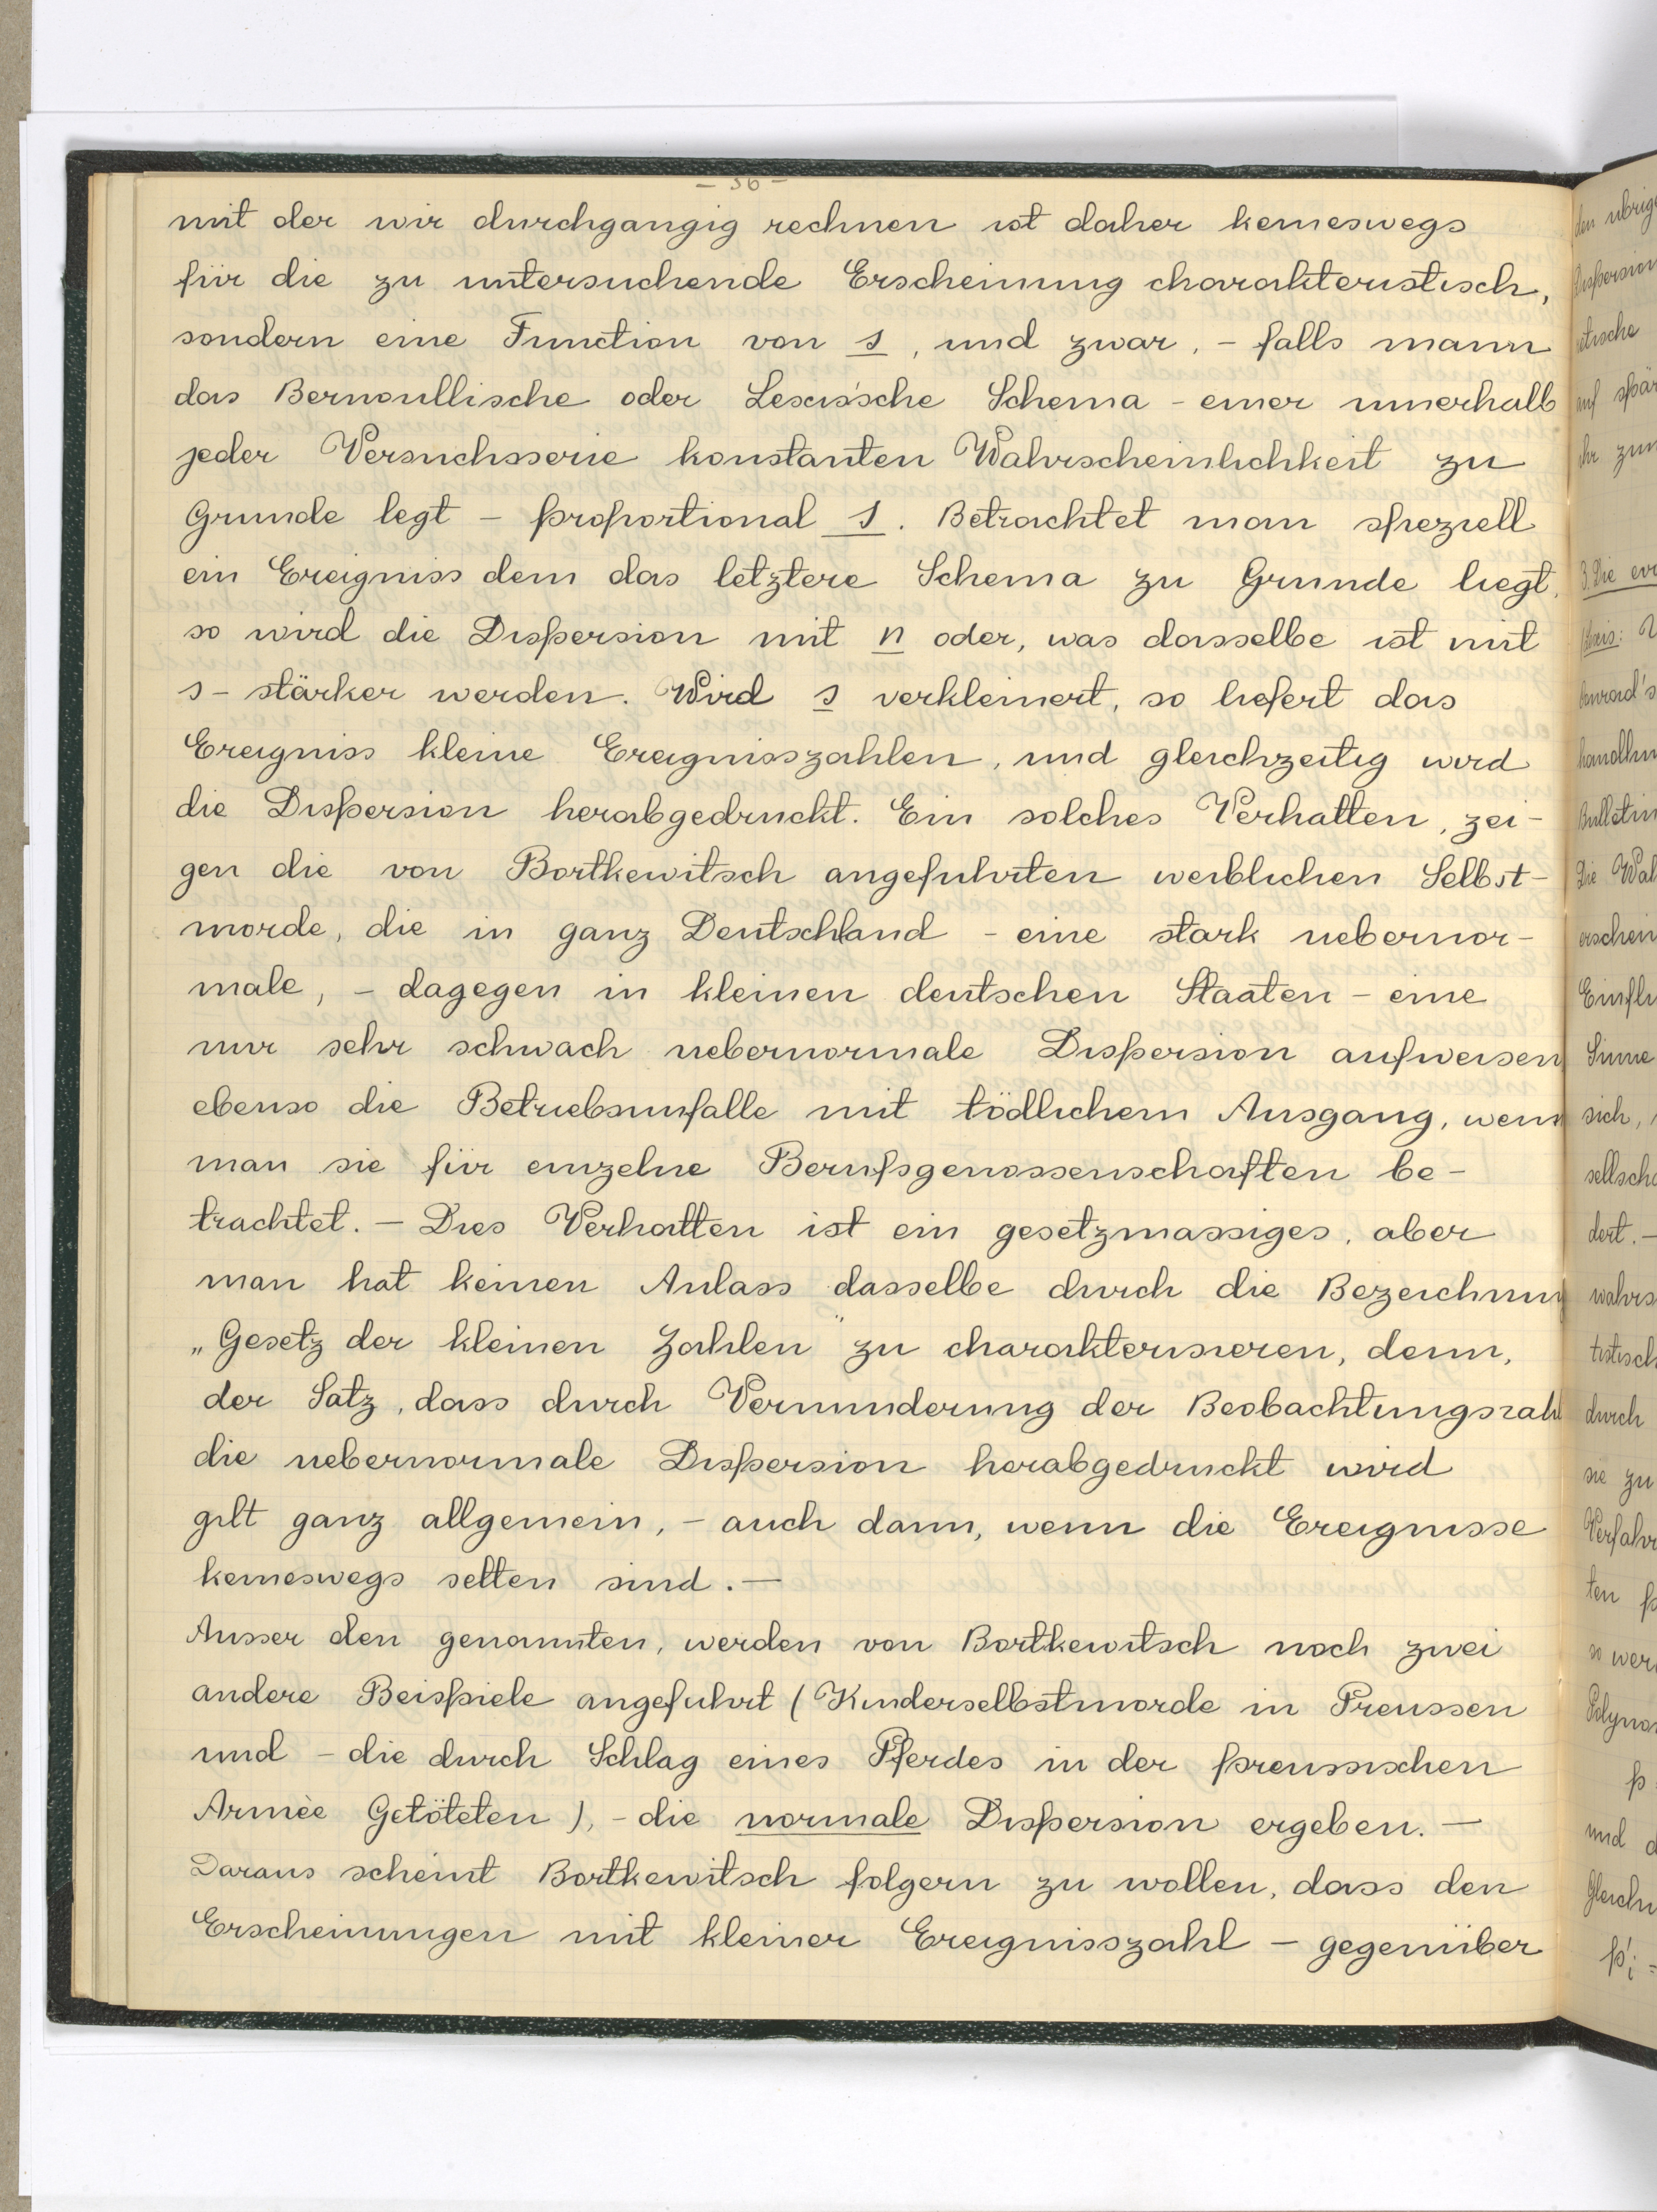 - 36 -
mit der wir durchgangig rechnen ist daher keineswegs
für die zu untersuchende Erscheinung charakteristisch,
sondern eine Function von s, und zwar, - falls mann
das Bernoullische oder Lexis'sche Schema - einer innerhalb
jeder Versuchsserie konstanten Wahrscheinlichkeit zu
Grunde legt - proportional s. Betrachtet man speziell
ein Ereigniss dem das letztere Schema zu Grunde liegt,
so wird die Dispersion mit n oder, was dasselbe ist mit
s - stärker werden. Wird s verkleinert, so liefert das
Ereigniss kleine Ereignisszahlen, und gleichzeitig wird
die Dispersion herabgedruckt. Ein solches Verhalten, zei-
gen die von Bortkewitsch angefuhrten weiblichen Selbst-
morde, die in ganz Deutschland - eine stark uebernor-
male, - dagegen in kleinen deutschen Staaten - eine
nur sehr schwach uebernormale Dispersion aufweisen
ebenso die Betriebsunfalle mit tödlichem Ausgang, wenn
man sie für einzelne Berufsgenossenschaften be-
trachtet. - Dies Verhalten ist ein gesetzmassiges, aber
man hat keinen Anlass dasselbe durch die Bezeichnung
„Gesetz der kleinen Zahlen" zu charakterisieren, denn,
der Satz, dass durch Verminderung der Beobachtungszahl
die uebernormale Dispersion herabgedruckt wird
gilt ganz allgemein, - auch dann, wenn die Ereignisse
keineswegs selten sind. -
Ausser den genannten, werden von Bortkewitsch noch zwei
andere Beispiele angefuhrt (Kinderselbstmorde in Preussen
und - die durch Schlag eines Pferdes in der preussischen
Armèe Getöteten), - die normale Dispersion ergeben. -
Daraus scheint Bortkewitsch folgern zu wollen, dass den
Erscheinungen mit kleiner Ereignisszahl - gegenüber
den ubrig
Dispersion
auf spär
ihr zum
3. Die
handlun
Bulletin
Die Wah
erschein
Einflu
Sinne
sich,
sellscha
dert. -
wahrs
tistisch
durch
sie zu
Verfahr
ten p
so wer
Polyno
p
und d
Gleichu
p'i =